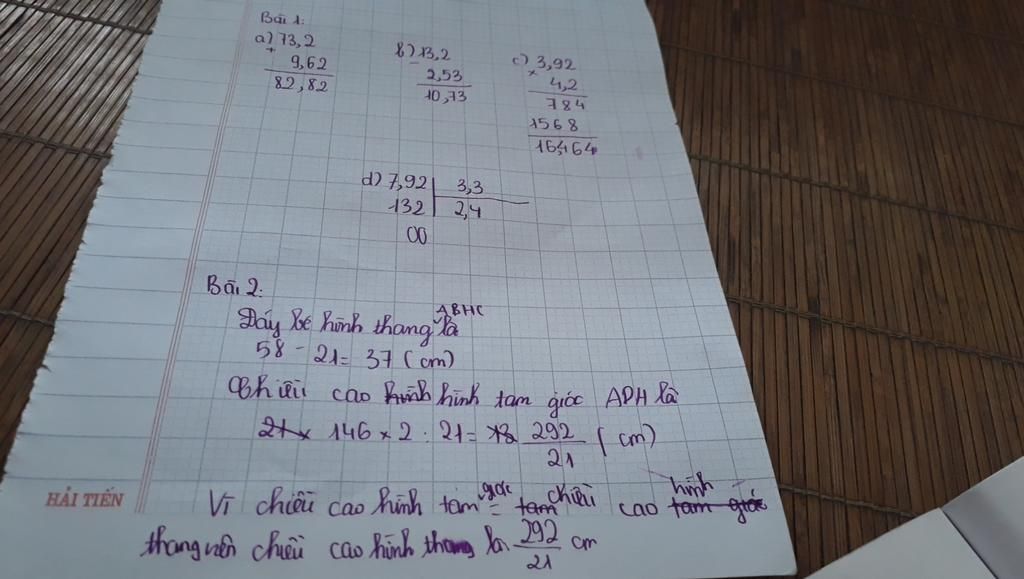 Bài 1:
a) 73,2
+
9,62
82,82
b) 13,2
-
2,53
10,73
c) 3,92
×
4,2
784
1568
16,464
d) 7,92 | 3,3
132 | 2,4
00
Bài 2.
Đáy bé hình thang ABHC là
58 - 21 = 37 (cm)
Chiều cao hình hình tam giác ADH là
21 × 146 × 2 : 21 = 292/21 (cm)
Vì chiều cao hình tam giác = tam chiều cao hình tam giác
thang nên chiều cao hình thang là 292/21 cm
HẢI TIẾN